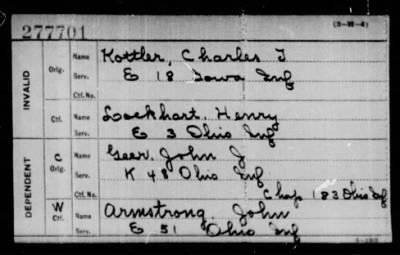 277701
(3-W-4)
INVALID
Orig.
Name Kottler, Charles T
Serv. E 18 Iowa Inf
Ctf. No.
Ctf.
Name Lockhart, Henry
Serv. E 3 Ohio Inf
DEPENDENT
C
Orig.
Name Geer, John J
Serv. K 48 Ohio Inf
Ctf. No. Chap 183 Ohio Inf
W
Ctf.
Name Armstrong, John
E 51 Ohio Inf